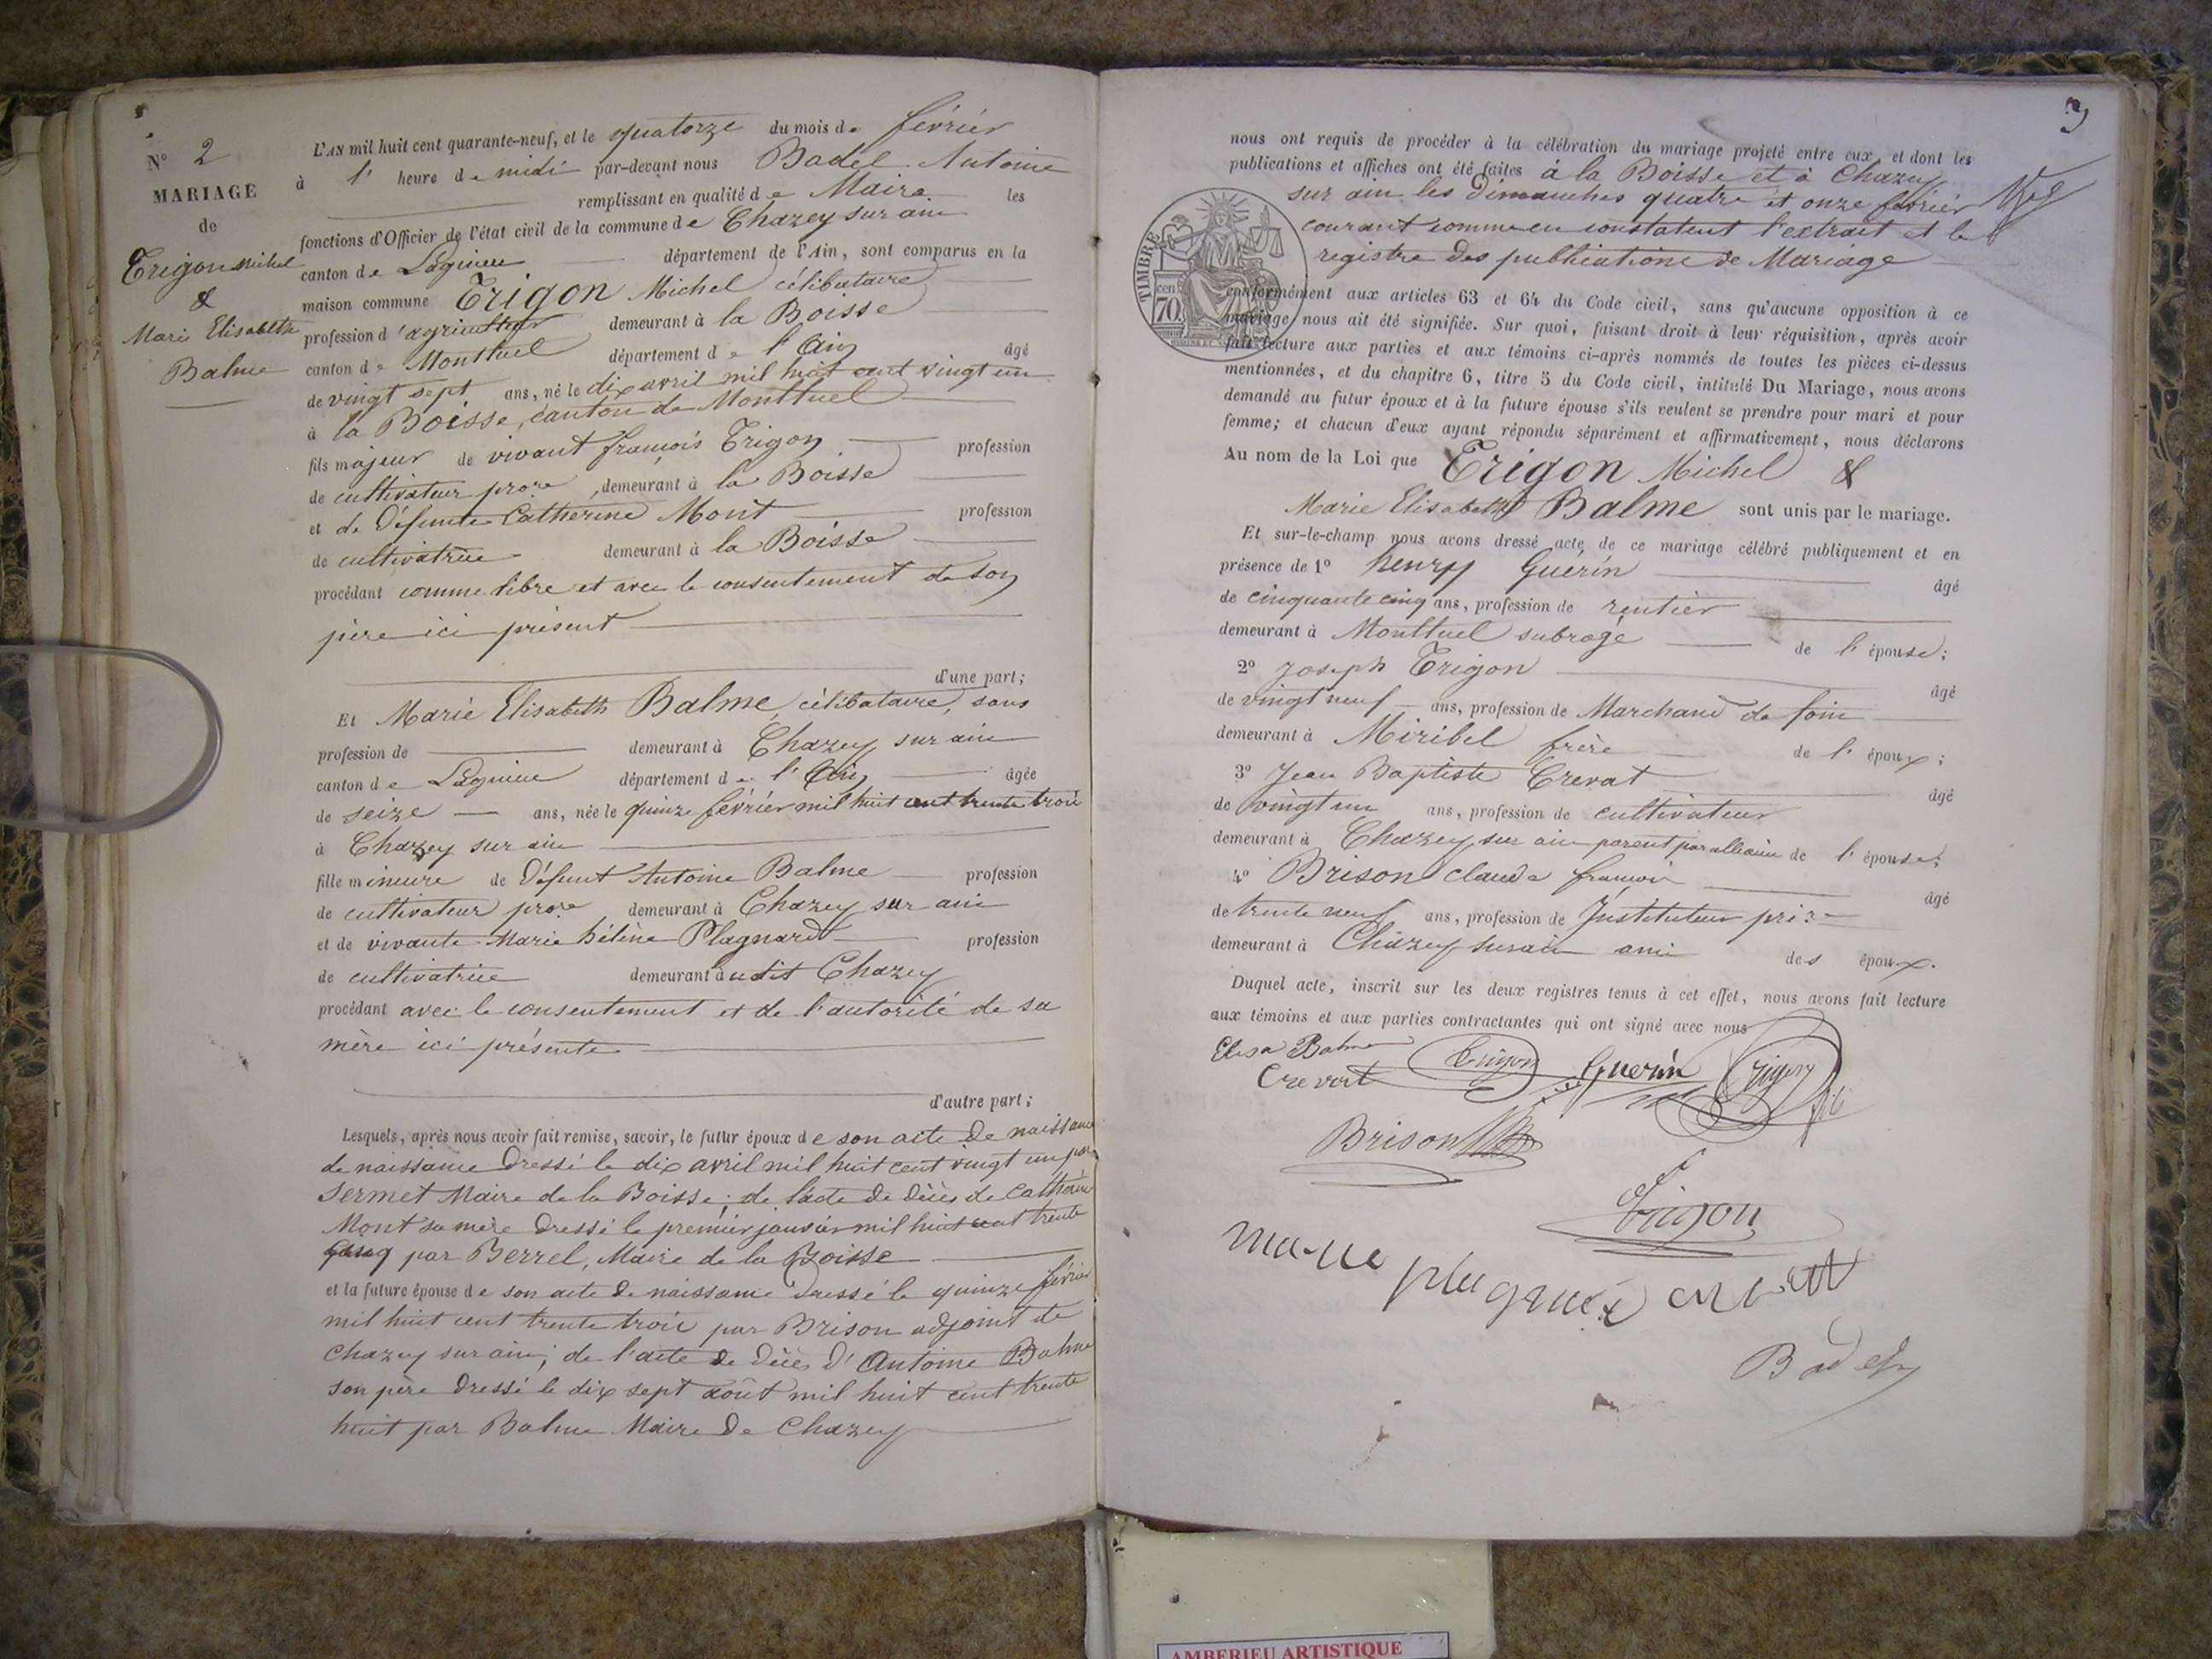 N° 2
MARIAGE
de
Trigon Michel
&
Marie Elisabeth
Balme
L'AN mil huit cent quarante-neuf, et le quatorze du mois de février
à l' heure de midi par-devant nous Badel Antoine
remplissant en qualité de Maire les
fonctions d'Officier de l'état civil de la commune de Chazey sur ain
canton de Lagnieu département de l'Ain, sont comparus en la
maison commune Trigon Michel célibataire
profession d'agriculteur demeurant à la Boisse
canton de Montluel département de l'Ain âgé
de vingt sept ans, né le dix avril mil huit cent vingt un
à la Boisse, canton de Montluel
fils majeur de vivant françois Trigon profession
de cultivateur propre, demeurant à la Boisse
et de Défunte Catherine Mont profession
de cultivatrice demeurant à la Boisse
procédant comme libre et avec le consentement de son
père ici présent
d'une part;
Et Marie Elisabeth Balme, célibataire, sans
profession de demeurant à Chazey sur ain
canton de Lagnieu département de l'Ain âgée
de seize ans, née le quinze février mil huit cent trente trois
à Chazey sur ain
fille mineure de Défunt Antoine Balme profession
de cultivateur propre demeurant à Chazey sur ain
et de vivante Marie hélène Plagnard profession
de cultivatrice demeurant audit Chazey
procédant avec le consentement et de l'autorité de sa
mère ici présente
d'autre part;
Lesquels, après nous avoir fait remise, savoir, le futur époux de son acte de naissance
de naissance dressé le dix avril mil huit cent vingt un par
Sermet Maire de la Boisse; de l'acte de décès de Catherine
Mont sa mère dressé le premier janvier mil huit cent trente
cinq par Berrel, Maire de la Boisse
et la future épouse de son acte de naissance dressé le quinze février
mil huit cent trente trois par Brison adjoint de
Chazey sur ain; de l'acte de décès d'Antoine Balme
son père dressé le dix sept août mil huit cent trente
huit par Balme Maire de Chazey
3
nous ont requis de procéder à la célébration du mariage projeté entre eux et dont les
publications et affiches ont été faites à la Boisse et à Chazey
sur ain les Dimanches quatre et onze février
courant comme en constatent l'extrait et le
registre des publications de Mariage
TIMBRE
cen.
70
conformément aux articles 63 et 64 du Code civil, sans qu'aucune opposition à ce
mariage nous ait été signifiée. Sur quoi, faisant droit à leur réquisition, après avoir
fait lecture aux parties et aux témoins ci-après nommés de toutes les pièces ci-dessus
mentionnées, et du chapitre 6, titre 5 du Code civil, intitulé Du Mariage, nous avons
demandé au futur époux et à la future épouse s'ils veulent se prendre pour mari et pour
femme; et chacun d'eux ayant répondu séparément et affirmativement, nous déclarons
Au nom de la Loi que Trigon Michel &
Marie Elisabeth Balme sont unis par le mariage.
Et sur-le-champ nous avons dressé acte de ce mariage célébré publiquement et en
présence de 1° henry Guérin âgé
de cinquante cinq ans, profession de rentier
demeurant à Montluel subrogé de l'épouse;
2° Joseph Trigon âgé
de vingt neuf ans, profession de Marchand de foin
demeurant à Miribel frère de l'époux;
3° Jean Baptiste Crevat âgé
de vingt un ans, profession de cultivateur
demeurant à Chazey sur ain parent par alliance de l'épouse;
4° Brison claude françois âgé
de trente neuf ans, profession de Instituteur
demeurant à Chazey sur ain ami des époux.
Duquel acte, inscrit sur les deux registres tenus à cet effet, nous avons fait lecture
aux témoins et aux parties contractantes qui ont signé avec nous
Elisa Balme Trigon Guerin Trigon
Crevat
Brison
Trigon
Badel
AMBERIEU ARTISTIQUE